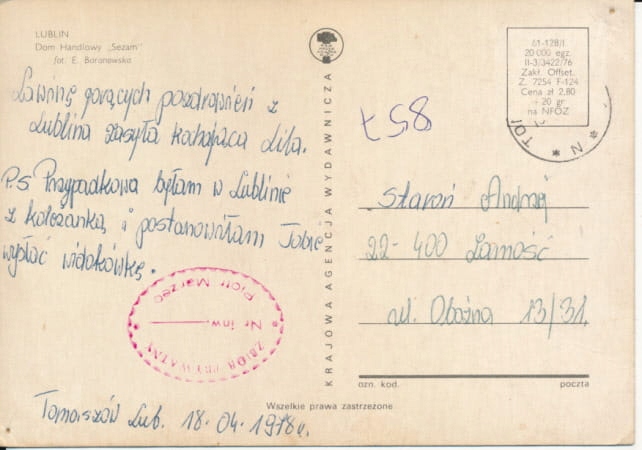 LUBLIN
Dom Handlowy „Sezam"
fot. E. Boronowska
Lawinę gorących pozdrowień z
Lublina zasyła kochająca Lila.
P.S Przypadkowo byłam w Lublinie
z koleżanką i postanowiłam Tobie
wysłać widokówkę.
ZBIÓR PRYWATNY
Nr inw.
Piotr Marzec
Tomaszów Lub. 18.04.1978r.
KRAJOWA AGENCJA WYDAWNICZA
61-128/I
20 000 egz.
II-3/3422/76
Zakł. Offset.
Z. 7254 F-124
Cena zł 2,80
+ 20 gr
na NFOZ
Staroń Andrzej
22-400 Zamość
ul. Obożna 13/31.
ozn. kod. poczta
Wszelkie prawa zastrzeżone